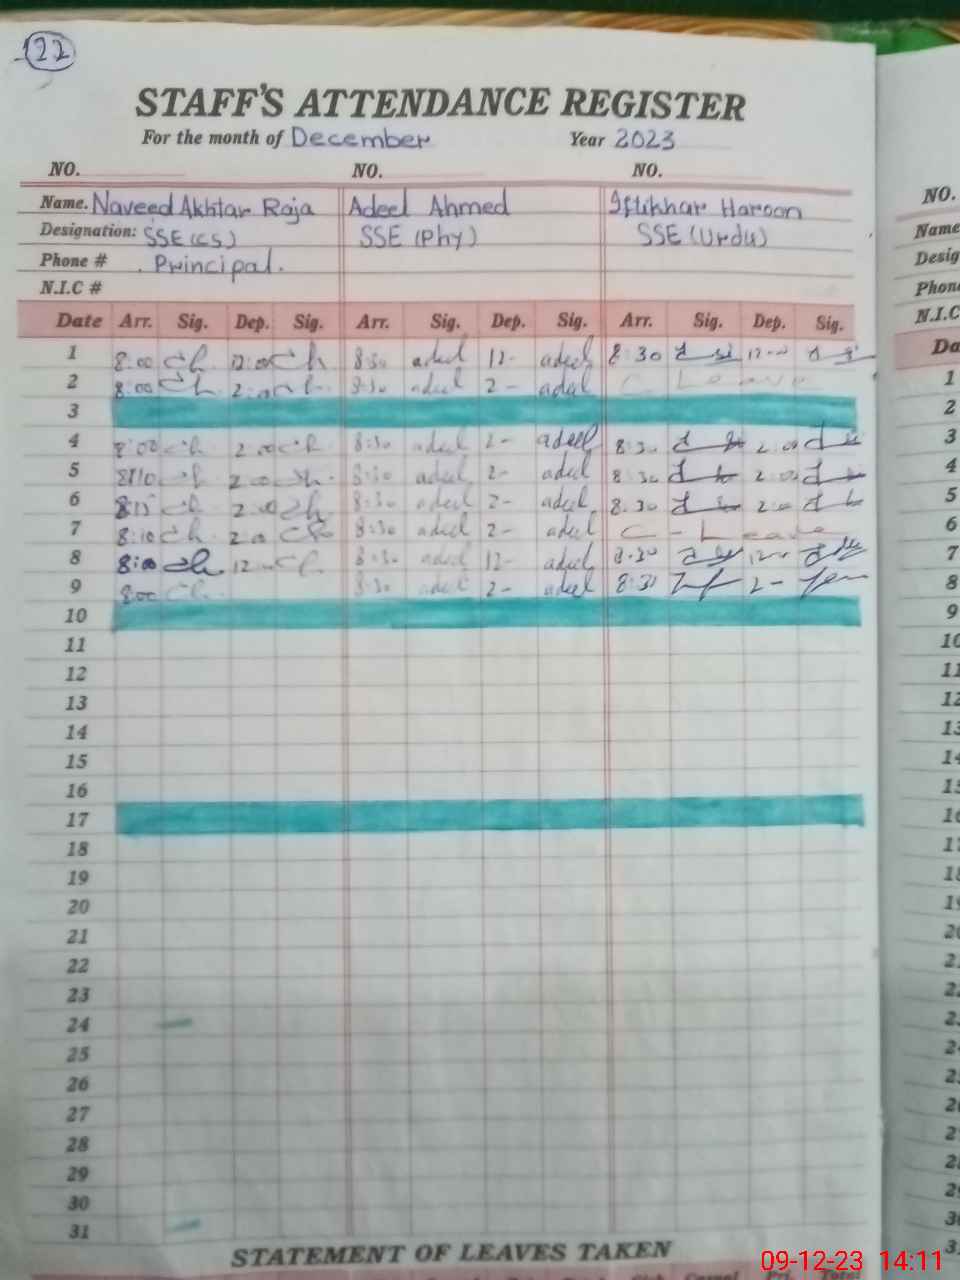 122
STAFF'S ATTENDANCE REGISTER
For the month of December Year 2023
NO. NO. NO.
Name. Naveed Akhtar Raja Adeel Ahmed Iftikhar Haroon
Designation: SSE (CS) SSE (Phy) SSE (Urdu)
Phone # Principal.
N.I.C #
Date Arr. Sig. Dep. Sig. Arr. Sig. Dep. Sig. Arr. Sig. Dep. Sig.
1 8:00 12:00 8:30 adeel 12- adeel 8:30 12-
2 8:00 2:00 8:30 adeel 2- adeel C Leave
3
4 8:00 2:00 8:30 adeel 2- adeel 8:30 2:00
5 8:10 2:00 8:30 adeel 2- adeel 8:30 2:00
6 8:15 2:00 8:30 adeel 2- adeel 8:30 2:00
7 8:10 2:00 8:30 adeel 2- adeel C - Leave
8 8:00 12- 8:30 adeel 12- adeel 8:30 12-
9 8:00 8:30 adeel 2- adeel 8:30 2-
10
11
12
13
14
15
16
17
18
19
20
21
22
23
24
25
26
27
28
29
30
31
STATEMENT OF LEAVES TAKEN
NO.
Name
Desig
Phone
N.I.C
Da
1
2
3
4
5
6
7
8
9
10
11
12
13
14
15
16
17
18
19
20
21
22
23
24
25
26
27
28
29
30
31
09-12-23 14:11